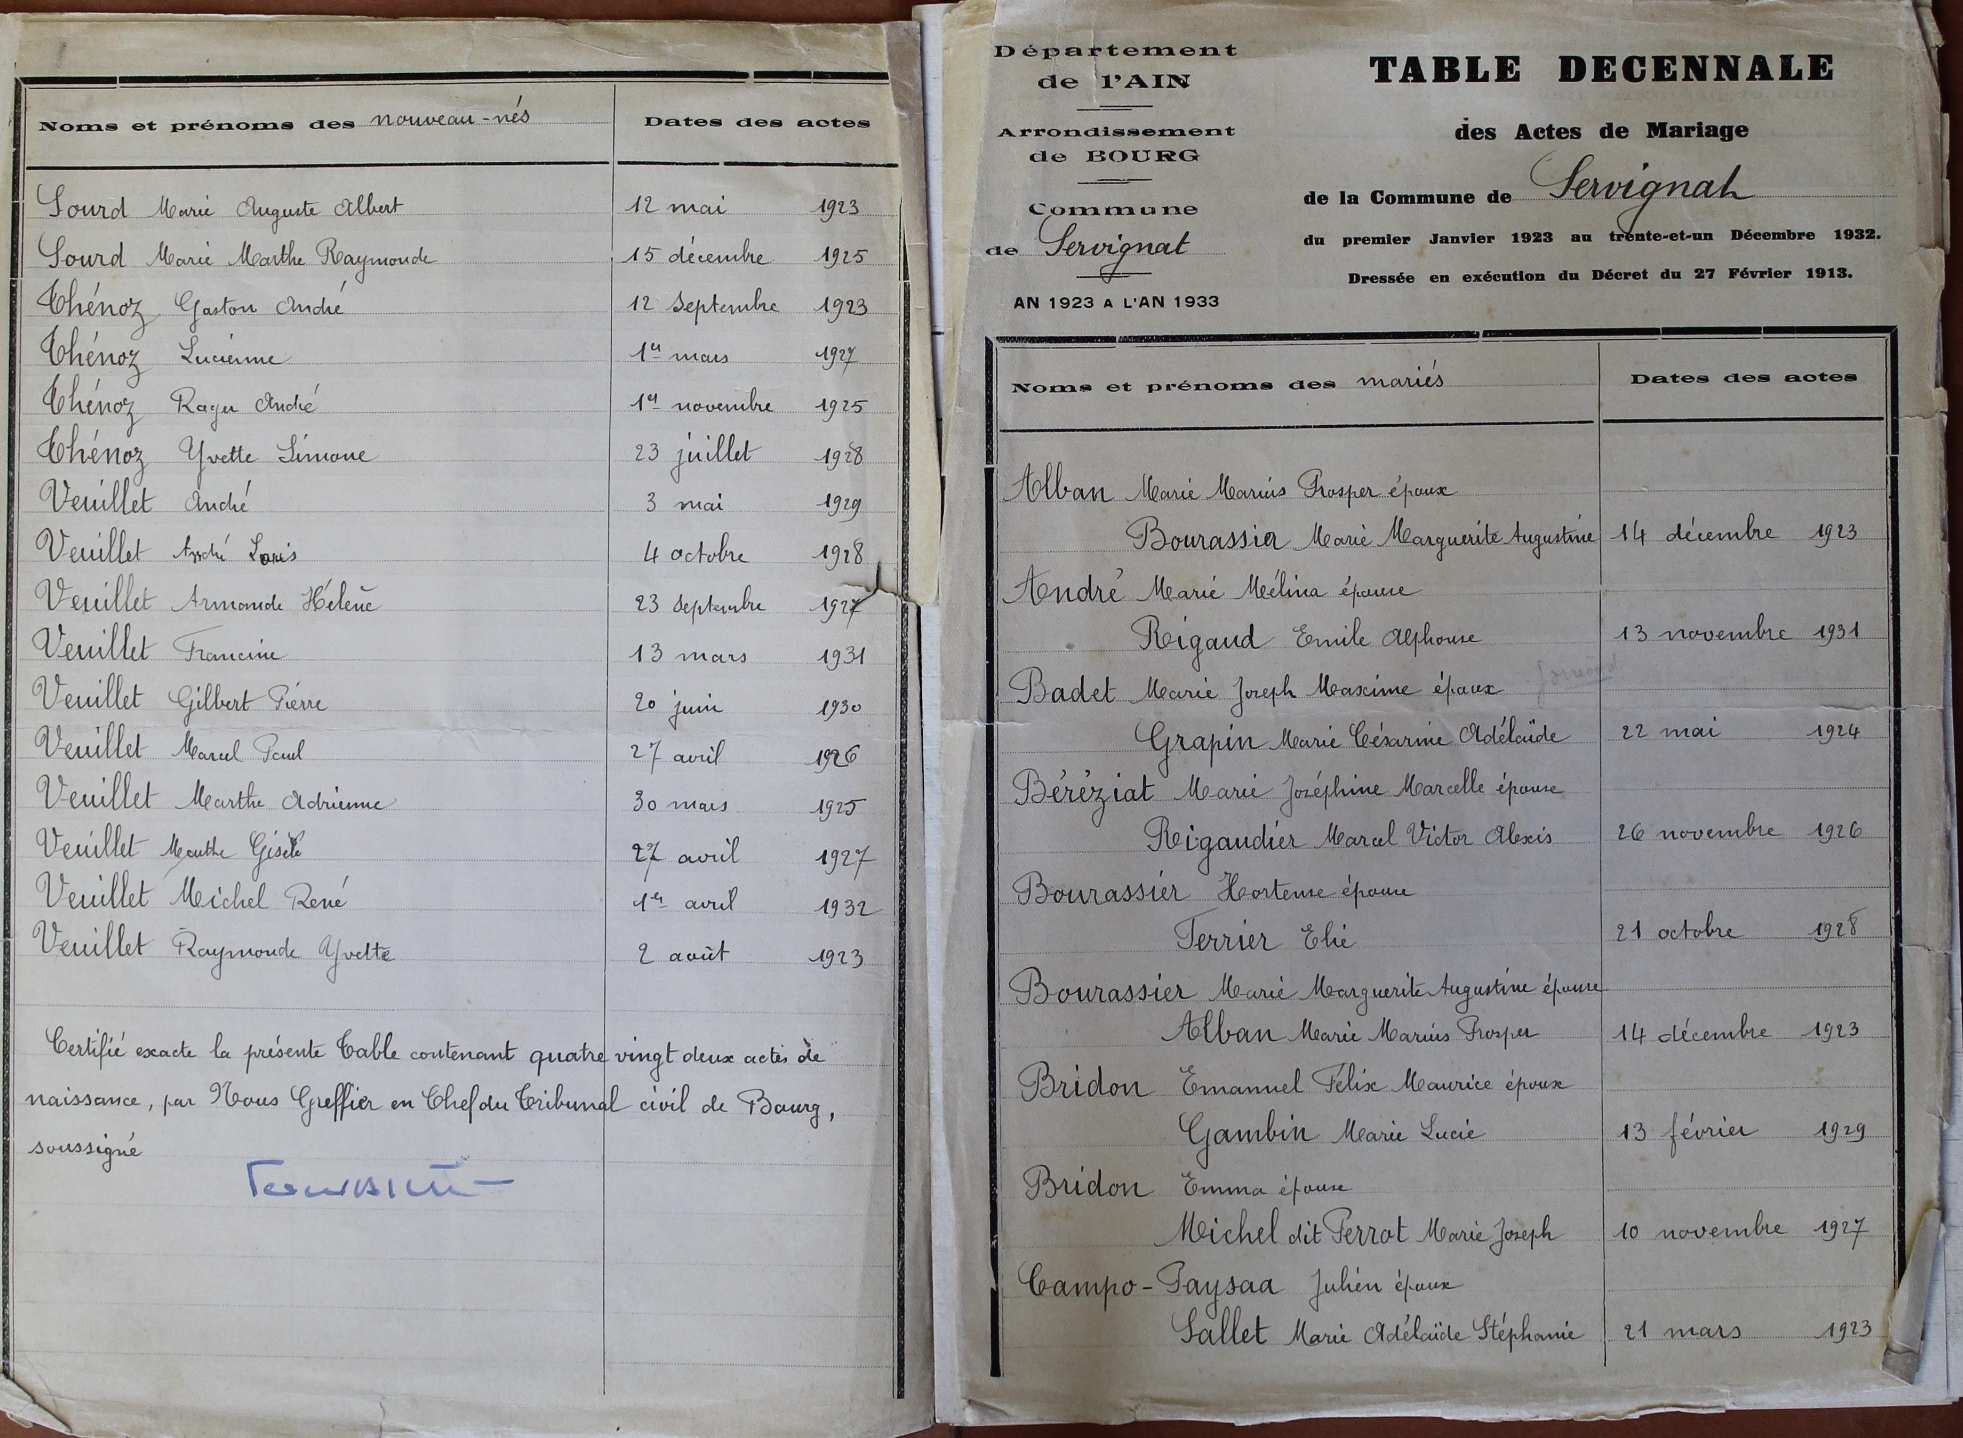 Noms et prénoms des nouveau-nés Dates des actes
Sourd Marie Auguste Albert 12 mai 1923
Sourd Marie Marthe Raymonde 15 décembre 1925
Thénoz Gaston André 12 septembre 1923
Thénoz Lucienne 1er mars 1927
Thénoz Roger André 1er novembre 1925
Thénoz Yvette Simone 23 juillet 1928
Veuillet André 3 mai 1929
Veuillet André Louis 4 octobre 1928
Veuillet Armande Hélène 23 septembre 1927
Veuillet Francine 13 mars 1931
Veuillet Gilbert Pierre 20 juin 1930
Veuillet Marcel Paul 27 avril 1926
Veuillet Marthe Adrienne 30 mars 1925
Veuillet Marthe Gisèle 27 avril 1927
Veuillet Michel René 1er avril 1932
Veuillet Raymonde Yvette 2 août 1923
Certifié exacte la présente Table contenant quatre vingt deux actes de
naissance, par Nous Greffier en Chef du Tribunal civil de Bourg,
soussigné
Département
de l'AIN
Arrondissement
de BOURG
Commune
de Servignat
AN 1923 A L'AN 1933
TABLE DECENNALE
des Actes de Mariage
de la Commune de Servignat
du premier Janvier 1923 au trente-et-un Décembre 1932.
Dressée en exécution du Décret du 27 Février 1913.
Noms et prénoms des mariés Dates des actes
Alban Marie Marius Prosper époux
Bourassier Marie Marguerite Augustine 14 décembre 1923
André Marie Mélina épouse
Rigaud Emile Alphonse 13 novembre 1931
Badet Marie Joseph Maxime époux
Grapin Marie Césarine Adélaïde 22 mai 1924
Béréziat Marie Joséphine Marcelle épouse
Rigaudier Marcel Victor Alexis 26 novembre 1926
Bourassier Hortense épouse
Terrier Elie 21 octobre 1928
Bourassier Marie Marguerite Augustine épouse
Alban Marie Marius Prosper 14 décembre 1923
Bridon Emanuel Félix Maurice époux
Gambin Marie Lucie 13 février 1929
Bridon Emma épouse
Michel dit Perrot Marie Joseph 10 novembre 1927
Campo-Paysaa Julien époux
Sallet Marie Adélaïde Stéphanie 21 mars 1923